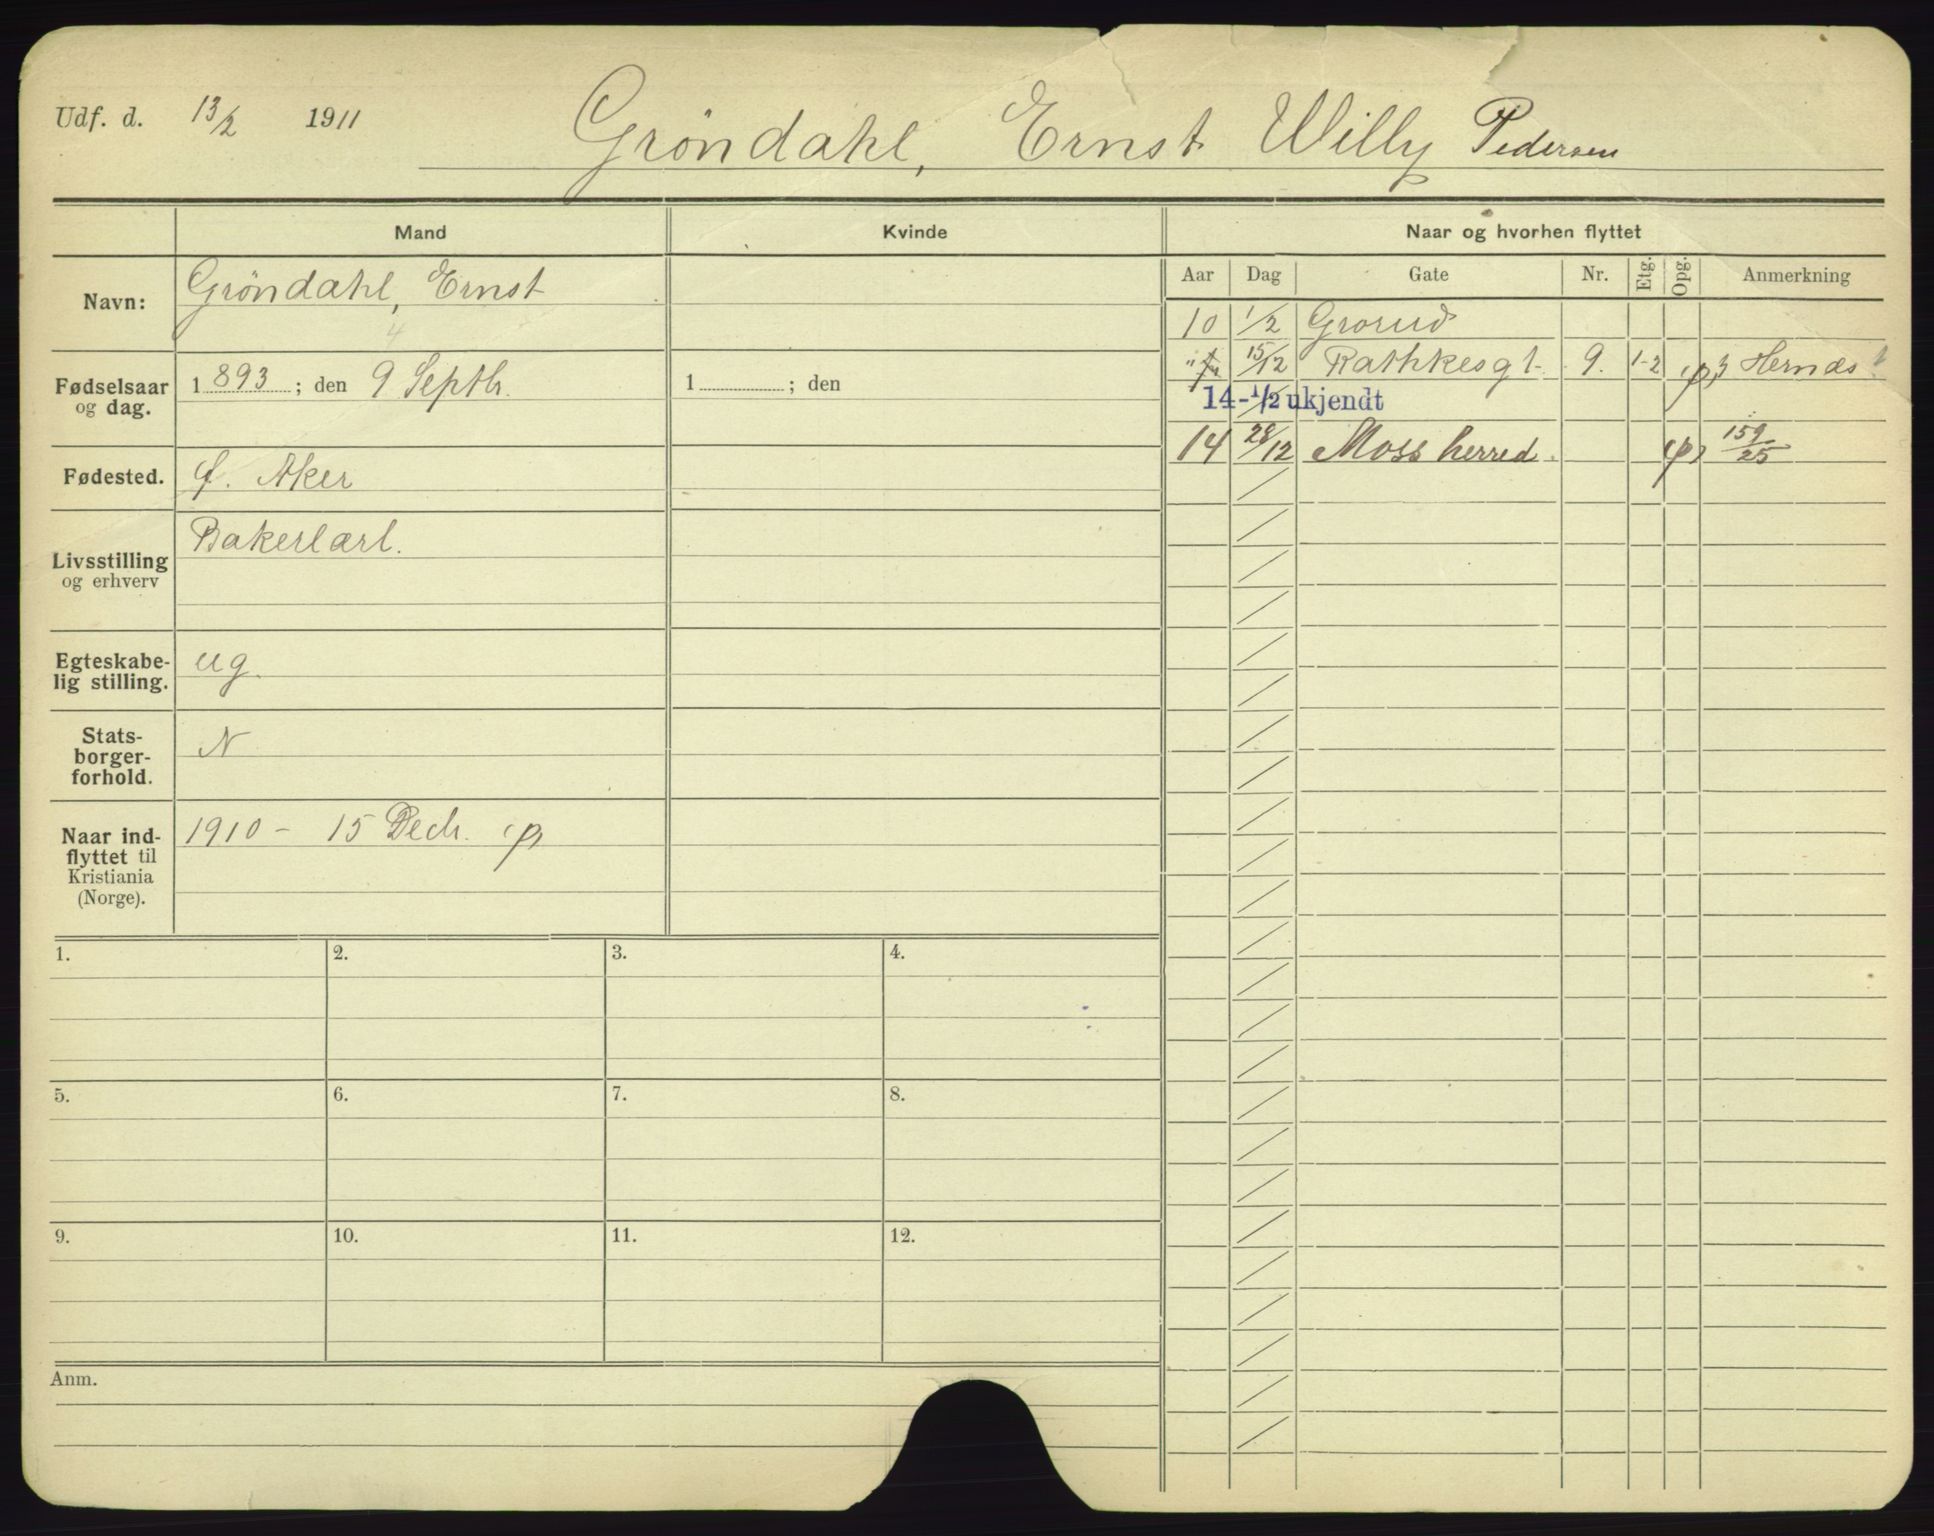 Udf. d. 13/2 1911
Gröndahl, Ernst Willy Pedersen
Mand Kvinde Naar og hvorhen flyttet
Aar Dag Gate Nr. Etg. Opg. Anmerkning
Navn: Gröndahl, Ernst
Fødselsaar og dag. 1893; den 9 Septbr. 1 ; den
Fødested. f. Aker
Livsstilling og erhverv Bakerlærl.
Egteskabe-
lig stilling. ug.
Stats-
borger-
forhold. N
Naar ind-
flyttet til
Kristiania
(Norge). 1910 - 15 Decbr.
10 1/2 Grorud
" 15/12 Rathkesgt. 9. 1-2 Hernæs
14-1/2 ukjendt
14 28/12 Moss herred. 159/25
1. 2. 3. 4.
5. 6. 7. 8.
9. 10. 11. 12.
Anm.